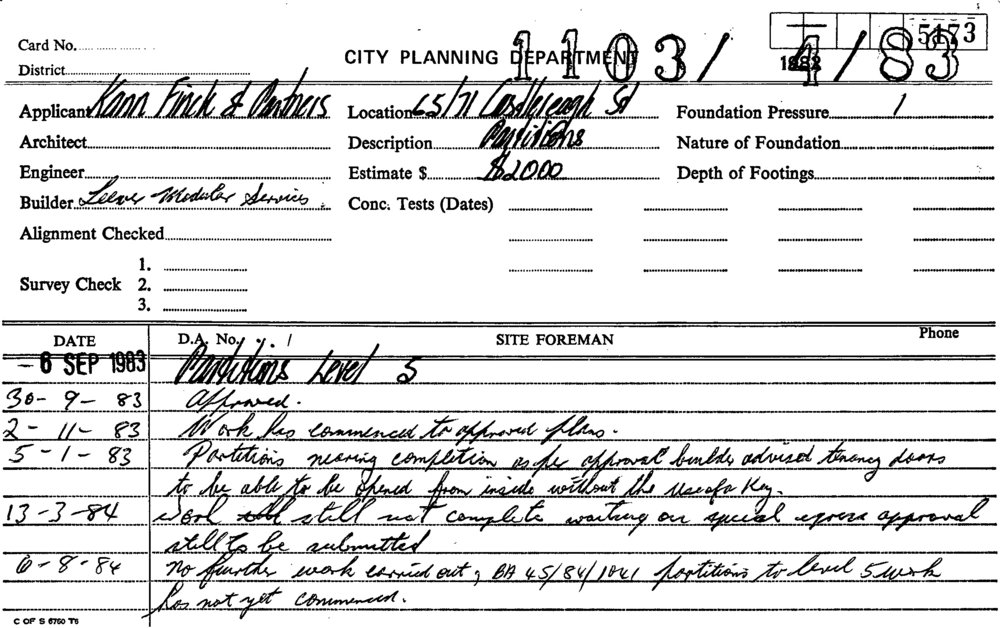 5173
Card No.
CITY PLANNING DEPARTMENT
1103/4/83
District
Applicant Kann Finch & Partners
Location 65/71 Castlereagh St
Foundation Pressure /
Architect
Description Partitions
Nature of Foundation
Engineer
Estimate $ $2000
Depth of Footings
Builder Modular Services
Conc. Tests (Dates)
Alignment Checked
1.
Survey Check 2.
3.
DATE
D.A. No.
SITE FOREMAN
Phone
- 6 SEP 1983 Partitions Level 5
30- 9- 83 Approved.
2- 11- 83 Work has commenced to approved plans.
5-1-83 Partitions nearing completion as per approval builder advised tenancy doors
to be able to be opened from inside without the use of a Key.
13-3-84 work still not complete waiting on special egress approval
still to be submitted
6-8-84 No further work carried out, BA 45/84/1041 partitions to level 5 work
has not yet commenced.
C OF S 6760 T6